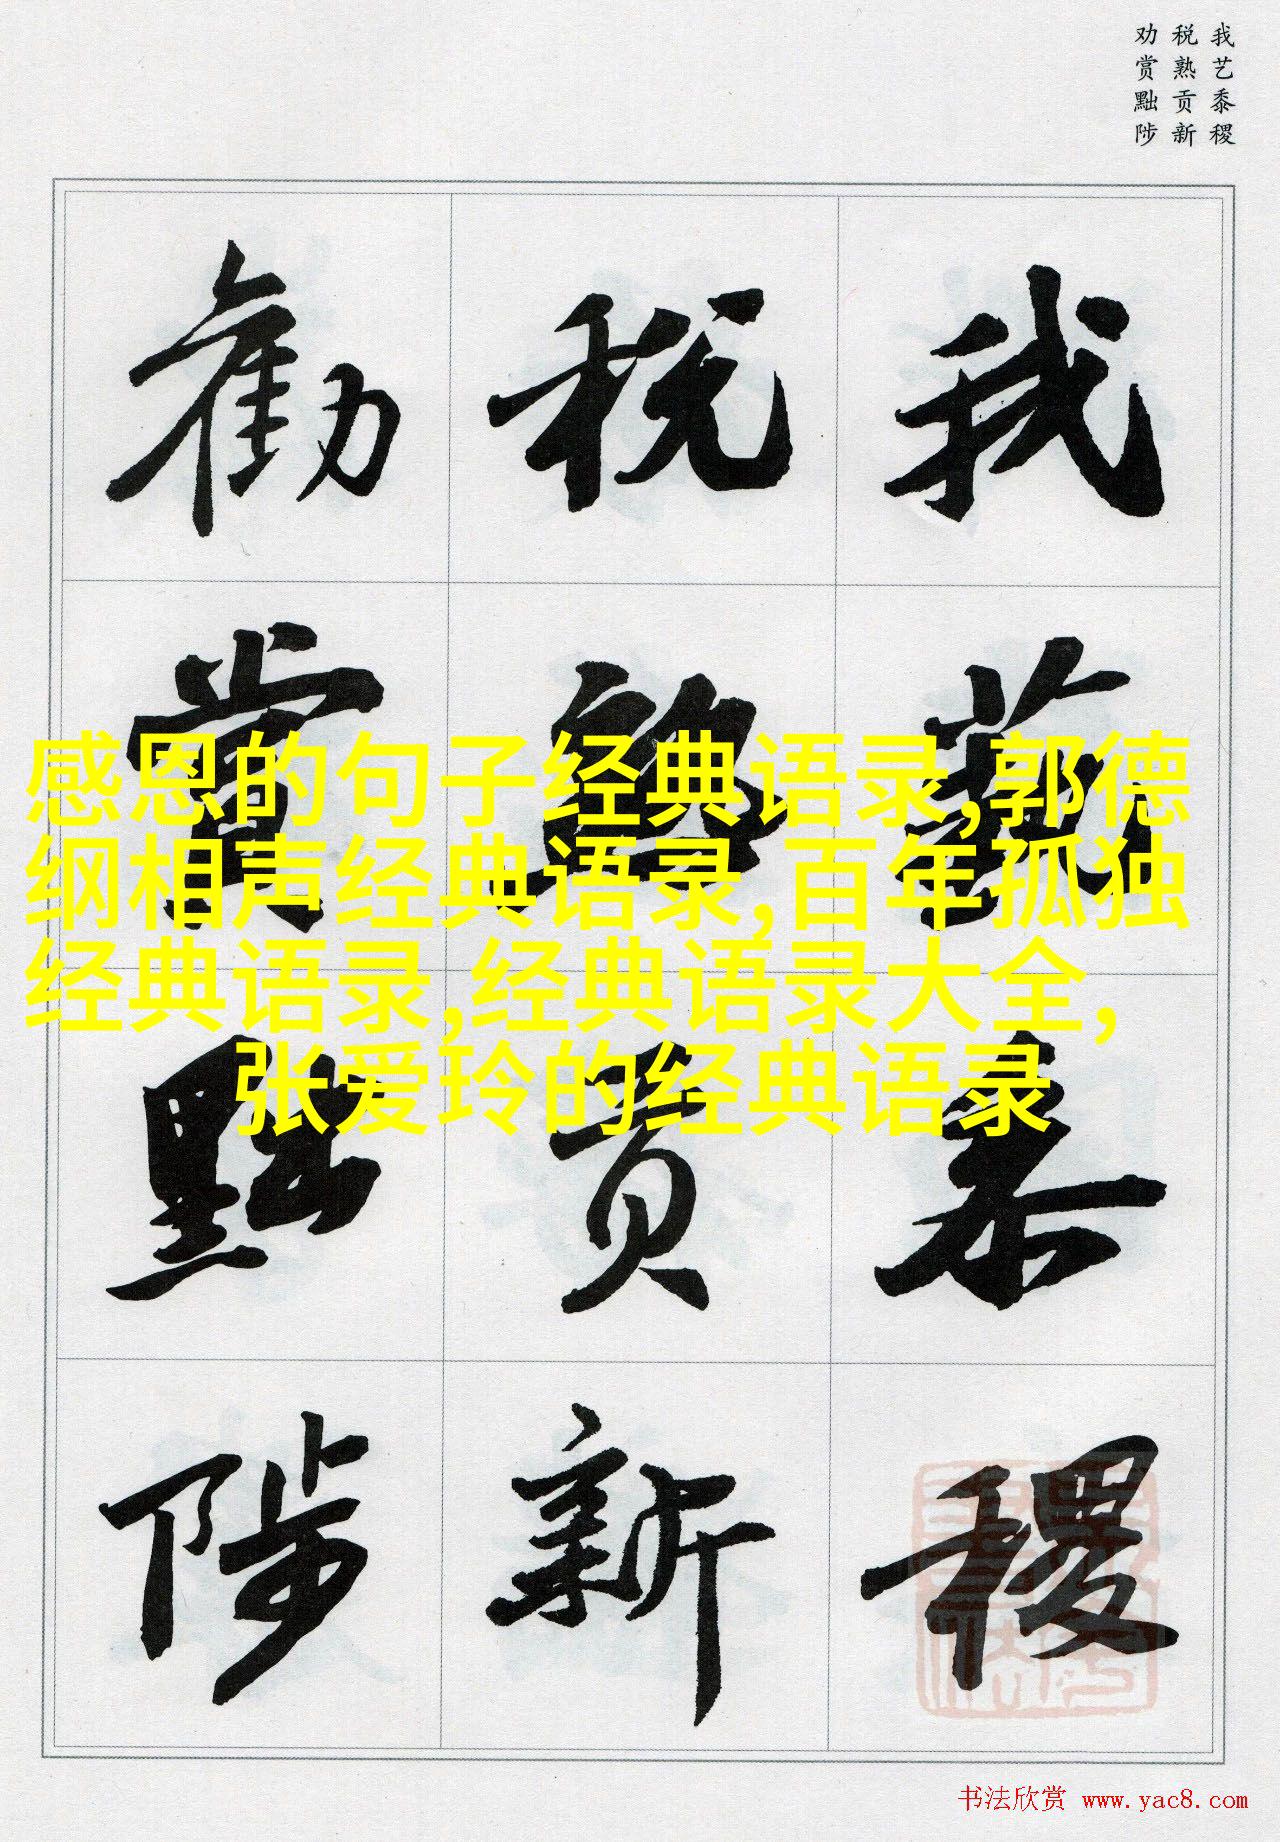 我艺黍稷
税熟贡新
劝赏黜陟
我藝黍稷
税熟貢新
勸賞黜陟
感恩的句子经典语录,郭德
纲相声经典语录,百年孤独
经典语录,经典语录大全,
张爱玲的经典语录
书法欣赏 www.yac8.com